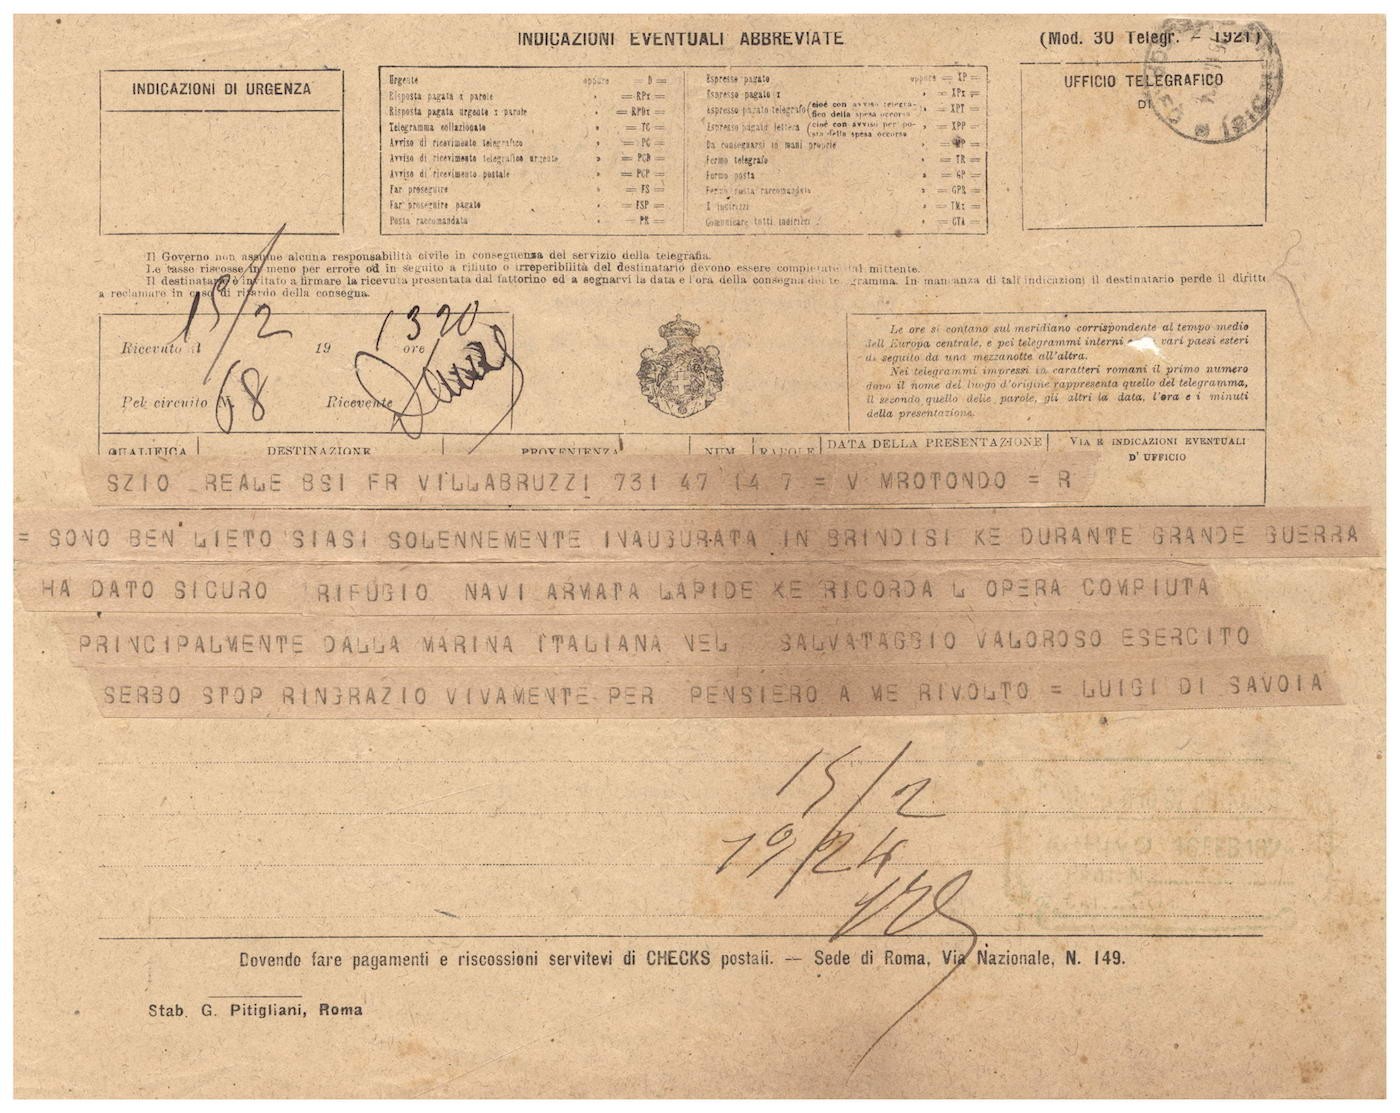 INDICAZIONI EVENTUALI ABBREVIATE
(Mod. 30 Telegr. - 1921)
INDICAZIONI DI URGENZA
Urgente oppure = D =
Risposta pagata x parole » = RPx =
Risposta pagata urgente x parole » = RPDx =
Telegramma collazionato » = TC =
Avviso di ricevimento telegrafico » = PC =
Avviso di ricevimento telegrafico urgente » = PCD =
Avviso di ricevimento postale » = PCP =
Far proseguire » = FS =
Far proseguire pagato » = FSP =
Posta raccomandata » = PR =
Espresso pagato oppure = XP =
Espresso pagato x » = XPx =
Espresso pagato telegrafo (cioé con avviso telegrafico della spesa occorsa » = XPT =
Espresso pagato lettera (cioé con avviso per posta della spesa occorsa » = XPP =
Da consegnarsi in mani proprie » = MP =
Fermo telegrafo » = TR =
Fermo posta » = GP =
Fermo posta raccomandata » = GPR =
x indirizzi » = TMx =
Comunicare tutti indirizzi » = CTA =
UFFICIO TELEGRAFICO
DI
Il Governo non assume alcuna responsabilità civile in conseguenza del servizio della telegrafia.
Le tasse riscosse in meno per errore od in seguito a rifiuto o irreperibilità del destinatario devono essere completate dal mittente.
Il destinatario è invitato a firmare la ricevuta presentata dal fattorino ed a segnarvi la data e l'ora della consegna del telegramma. In mancanza di tali indicazioni il destinatario perde il diritto
a reclamare in caso di ritardo della consegna.
15/2 1320
Ricevuto il 19 ore
Pel circuito N. 68 Ricevente
Le ore si contano sul meridiano corrispondente al tempo medio
dell'Europa centrale, e pei telegrammi interni vari paesi esteri
di seguito da una mezzanotte all'altra.
Nei telegrammi impressi in caratteri romani il primo numero
dopo il nome del luogo d'origine rappresenta quello del telegramma,
il secondo quello delle parole, gli altri la data, l'ora e i minuti
della presentazione.
QUALIFICA DESTINAZIONE PROVENIENZA NUM. PAROLE DATA DELLA PRESENTAZIONE VIA E INDICAZIONI EVENTUALI
D'UFFICIO
SZIO REALE BSI FR VILLABRUZZI 731 47 14 7 = V MROTONDO = R
= SONO BEN LIETO SIASI SOLENNEMENTE INAUGURATA IN BRINDISI KE DURANTE GRANDE GUERRA
HA DATO SICURO RIFUGIO NAVI ARMATA LAPIDE KE RICORDA L OPERA COMPIUTA
PRINCIPALMENTE DALLA MARINA ITALIANA NEL SALVATAGGIO VALOROSO ESERCITO
SERBO STOP RINGRAZIO VIVAMENTE PER PENSIERO A ME RIVOLTO = LUIGI DI SAVOIA
15/2
19/24
Dovendo fare pagamenti e riscossioni servitevi di CHECKS postali. — Sede di Roma, Via Nazionale, N. 149.
Stab. G. Pitigliani, Roma